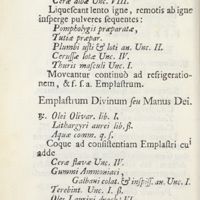 Ceræ albæ Unc. VIII.
Liquescant lento igne, remotis ab igne
insperge pulveres sequentes:
Pompholygis præparatæ,
Tutiæ præpar.
Plumbi usti & loti an. Unc. II.
Cerussæ lotæ Unc. IV.
Thuris masculi Unc. I.
Moveantur continuò ad refrigeratio-
nem, & f. s. a. Emplastrum.
Emplastrum Divinum seu Manus Dei.
℞. Olei Olivar. lib. I.
Lithargyri aurei lib. ß.
Aquæ comm. q. s.
Coque ad consistentiam Emplastri cui
adde
Ceræ flavæ Unc. IV.
Gummi Ammoniaci,
Galbani colat. & inspiss. an. Unc. I.
Terebint. Unc. I. ß.
Olei Laurini